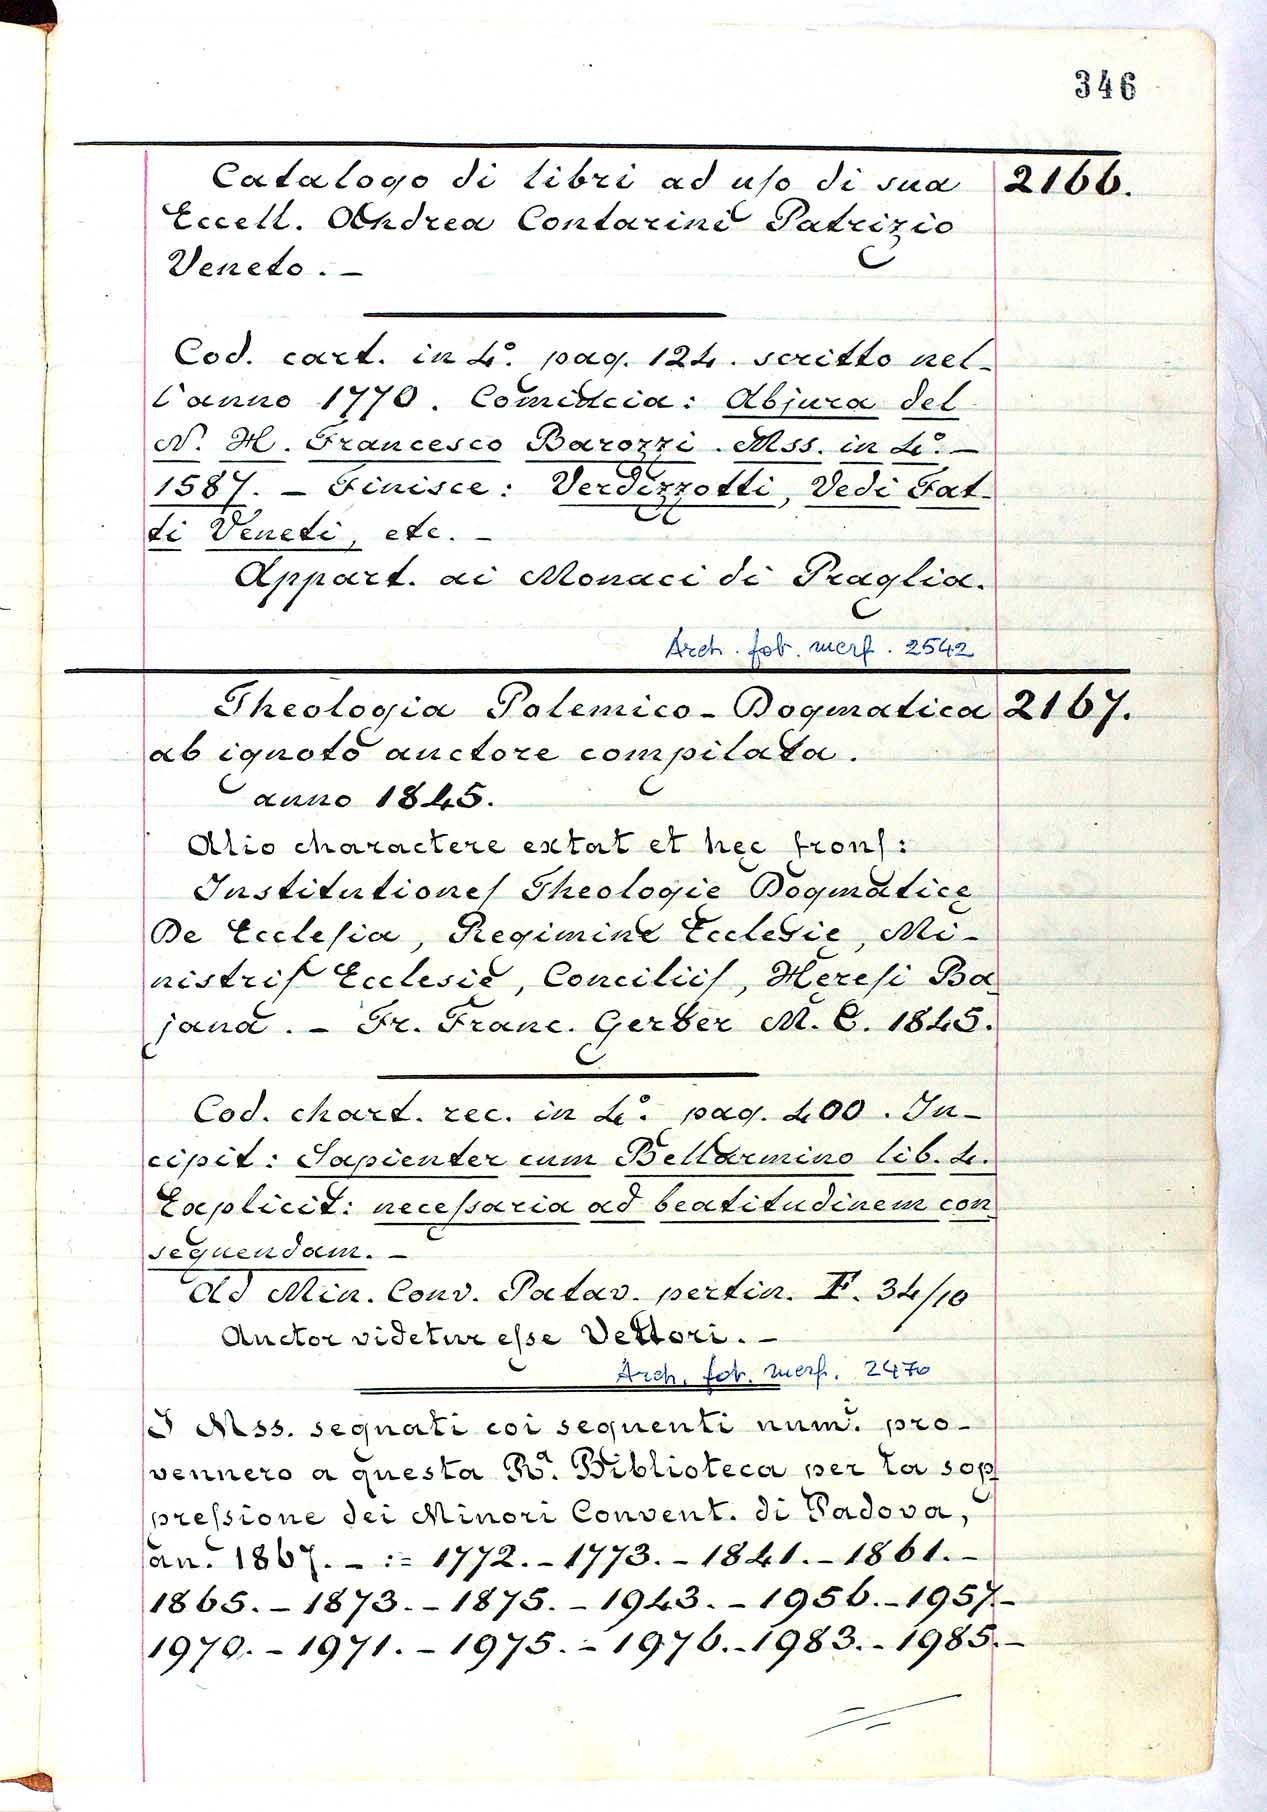 346
Catalogo di libri ad uſo di sua 2166.
Eccell. Andrea Contarini Patrizio
Veneto. –
Cod. cart. in 4º. pag. 124. scritto nel-
l'anno 1770. Comincia: Abjura del
N. H. Francesco Barozzi. Mss. in 4º. –
1587. – Finisce: Verdizzotti, Vedi Fat-
ti Veneti, etc. –
Appart. ai Monaci di Praglia.
Arch. fot. merf. 2542
Theologia Polemico-Dogmatica 2167.
ab ignoto auctore compilata.
anno 1845.
Alio charactere extat et hęc fronſ:
Institutioneſ Theologię Dogmaticę
De Eccleſia, Regimine Ecclesię, Mi-
nistriſ Ecclesię, Conciliiſ, Hęreſi Ba
jana. – Fr. Franc. Gerber M. C. 1845.
Cod. chart. rec. in 4º. pag. 400. In-
cipit: Sapienter cum Bellarmino lib. 4.
Explicit: neceſsaria ad beatitudinem con
sequendam. –
Ad Min. Conv. Patav. pertin. F. 34/10
Auctor videtur eſse Vettori. –
Arch. fot. merf. 2470
I Mss. segnati coi seguenti numⁱ. pro-
vennero a questa Rª. Biblioteca per la sop
preſsione dei Minori Convent. di Padova,
an. 1867. – := 1772. – 1773. – 1841. – 1861. –
1865. – 1873. – 1875. – 1943. – 1956. – 1957 –
1970. – 1971. – 1975. – 1976. – 1983. – 1985. –